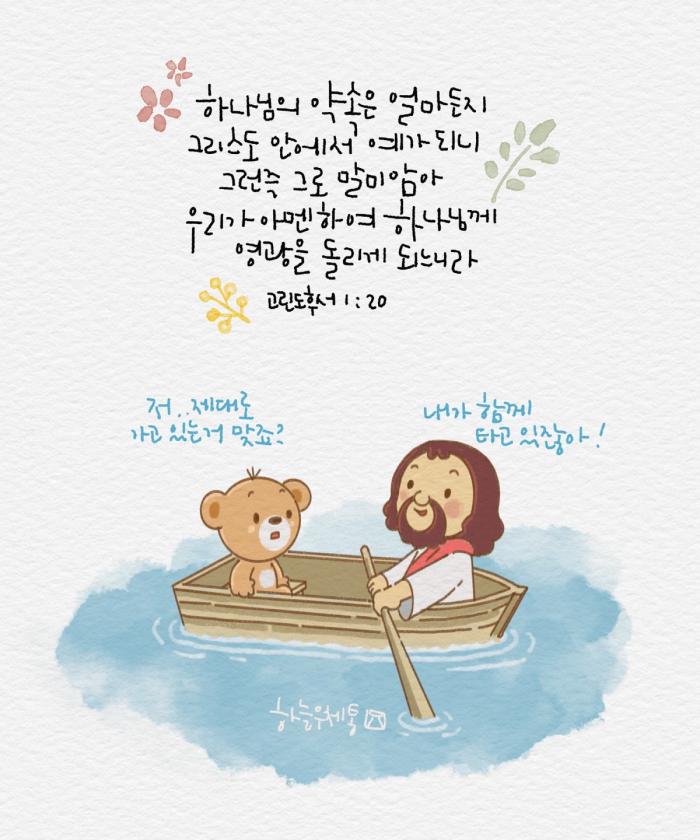 하나님의 약속은 얼마든지
그리스도 안에서 예가 되니
그런즉 그로 말미암아
우리가 아멘하여 하나님께
영광을 돌리게 되느니라
고린도후서 1:20
저..제대로
가고 있는거 맞죠?
내가 함께
타고 있잖아!
하늘우체통